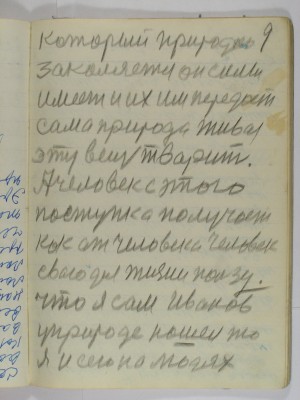 который природою 9
закаляет он сили
имеет и их им передает
сама природа живая
эту вещу тварит.
А человек с этого
поступка получает
как от человека человек
свого для жизни пользу.
что я сам Иванов
у природе нашел то
я и сею на людях